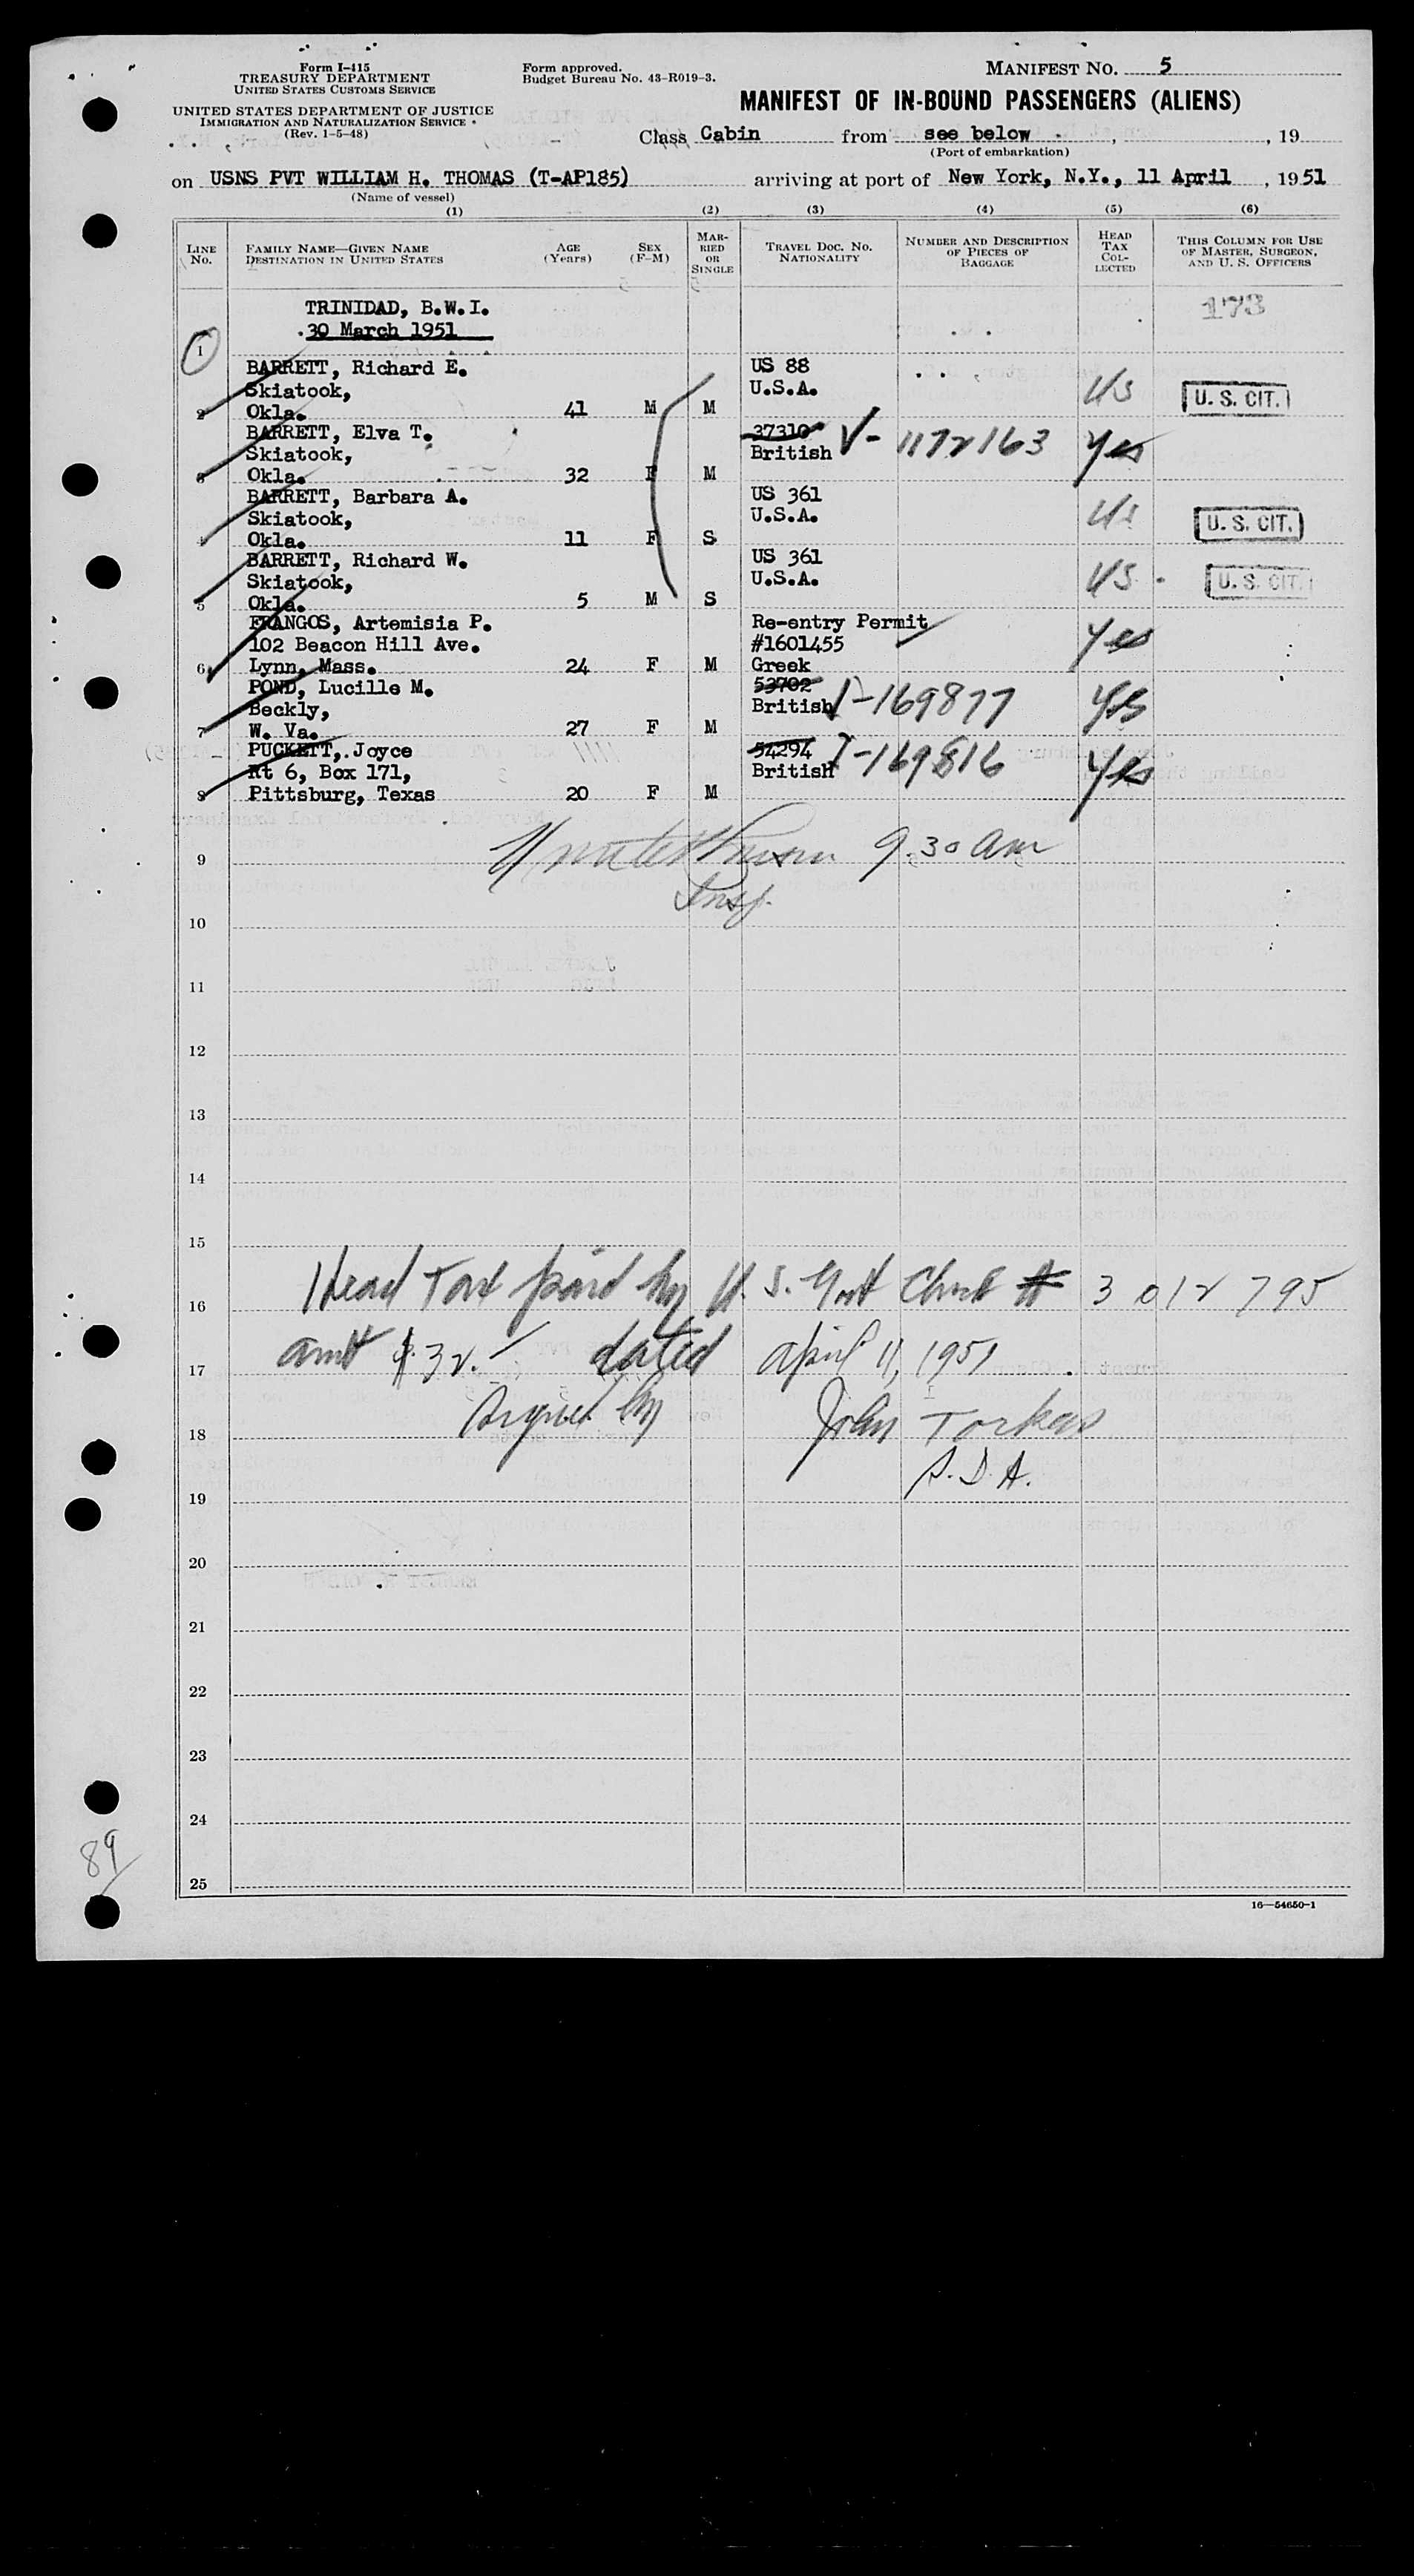 Form I-415
TREASURY DEPARTMENT
UNITED STATES CUSTOMS SERVICE
UNITED STATES DEPARTMENT OF JUSTICE
IMMIGRATION AND NATURALIZATION SERVICE
(Rev. 1-5-48)
Form approved.
Budget Bureau No. 43-R019-3.
MANIFEST NO. 5
MANIFEST OF IN-BOUND PASSENGERS (ALIENS)
Class Cabin from see below , 19
(Port of embarkation)
on USNS PVT WILLIAM H. THOMAS (T-AP185) arriving at port of New York, N.Y., 11 April , 1951
(Name of vessel)
(1) (2) (3) (4) (5) (6)
LINE No.
FAMILY NAME—GIVEN NAME
DESTINATION IN UNITED STATES
AGE (Years)
SEX (F-M)
MARRIED OR SINGLE
TRAVEL DOC. NO.
NATIONALITY
NUMBER AND DESCRIPTION OF PIECES OF BAGGAGE
HEAD TAX COLLECTED
THIS COLUMN FOR USE OF MASTER, SURGEON, AND U. S. OFFICERS
TRINIDAD, B.W.I. 173
30 March 1951
1
BARRETT, Richard E. US 88
Skiatook, U.S.A. US U. S. CIT.
2 Okla. 41 M M
BARRETT, Elva T. 37310 V- 1172163 Yes
Skiatook, British
3 Okla. 32 F M
BARRETT, Barbara A. US 361
Skiatook, U.S.A. US U. S. CIT.
4 Okla. 11 F S
BARRETT, Richard W. US 361
Skiatook, U.S.A. US U. S. CIT.
5 Okla. 5 M S
FRANGOS, Artemisia P. Re-entry Permit
102 Beacon Hill Ave. #1601455 Yes
6 Lynn, Mass. 24 F M Greek
POND, Lucille M. 53702
Beckly, British V-169877 Yes
7 W. Va. 27 F M
PUCKETT, Joyce 54294
Rt 6, Box 171, British V-169816 Yes
8 Pittsburg, Texas 20 F M
9 9.30 am
Insp.
10
11
12
13
14
15
Head Tax paid by U. S. Govt Check # 3 012 795
16
amt $32.- dated april 11, 1951
17
Signed by John Torkas
18
S.D.A.
19
20
21
22
23
24
89
25
16—54650-1